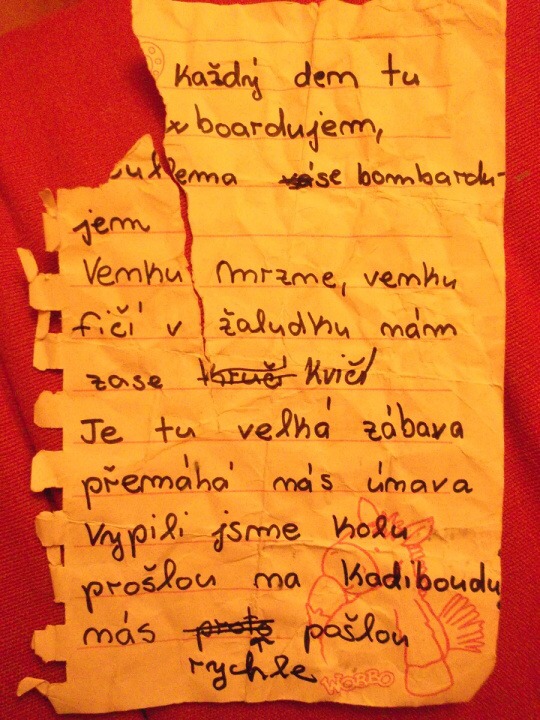 Každý den tu
boardujem,
se bombardu-
jem
Venku mrzne, venku
fičí v žaludku nám
zase kvičí
Je tu velká zábava
přemáhá nás únava
Vypili jsme kolu
prošlou na kadiboudu
nás pošlou
rychle
WORBO